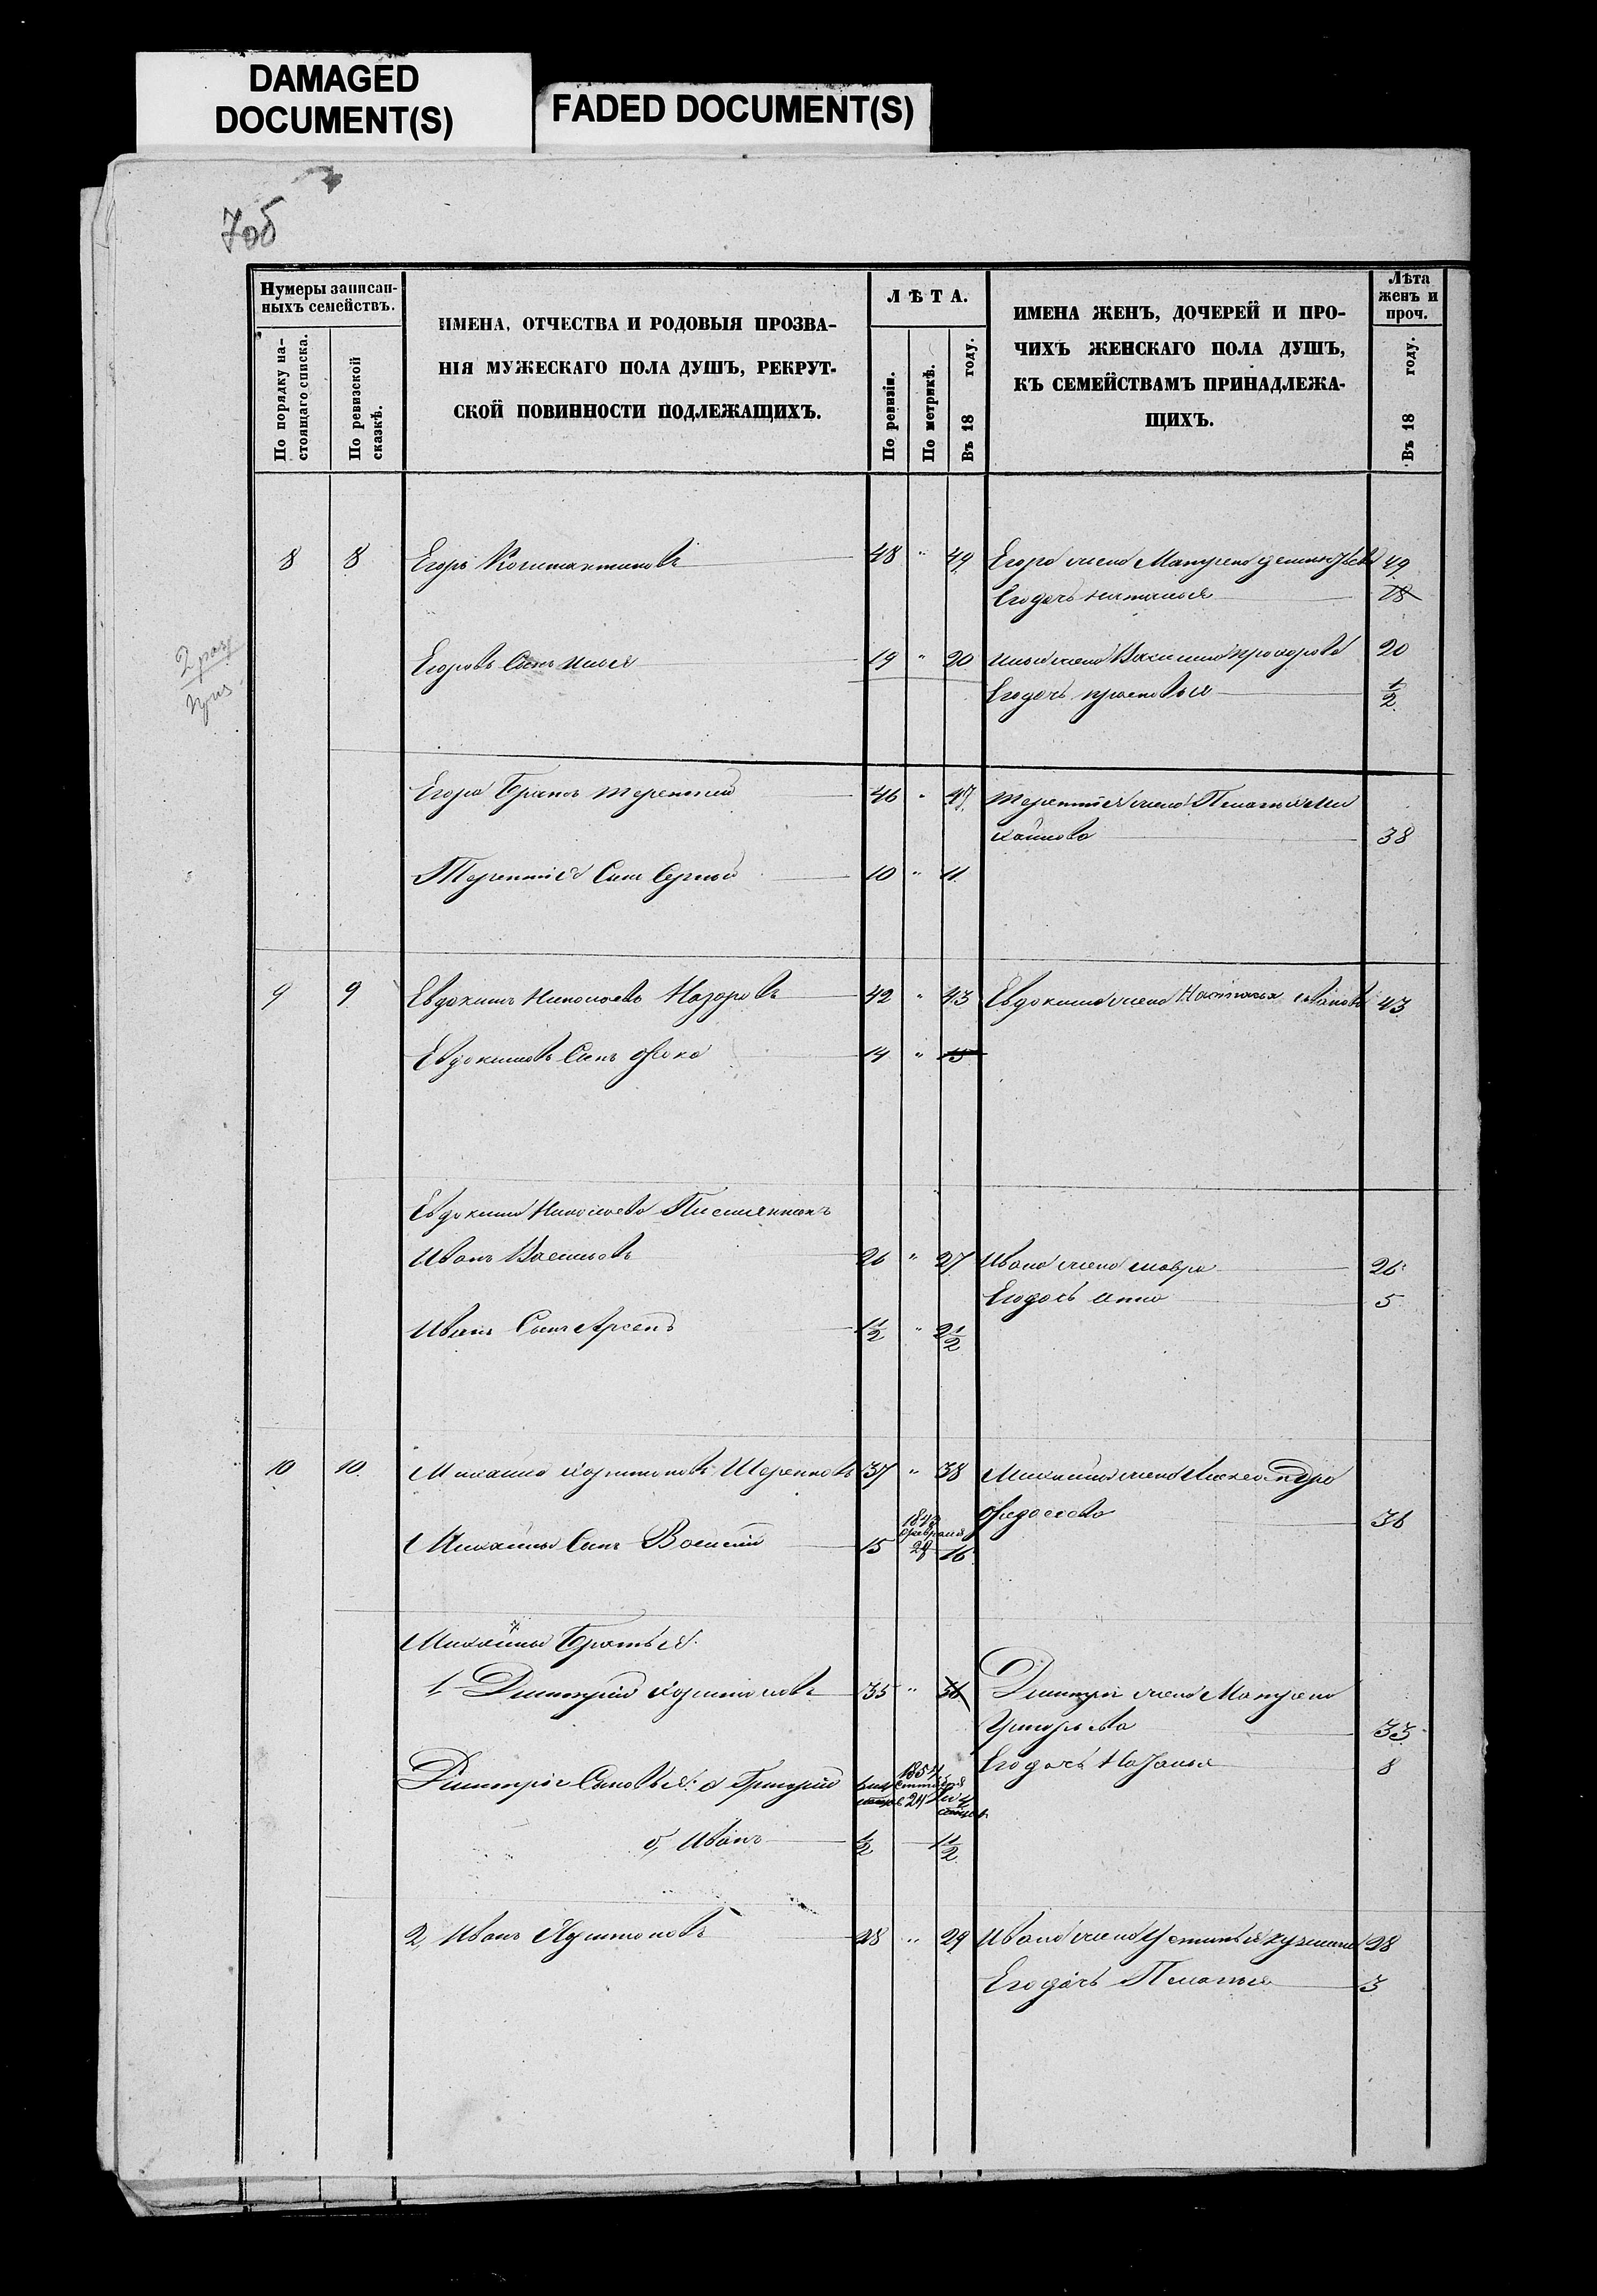 DAMAGED
DOCUMENT(S)
FADED DOCUMENT(S)
7об
Нумеры записан-
ныхъ семействъ.
По порядку на-
стоящаго списка.
По ревизской
сказкѣ.
ИМЕНА, ОТЧЕСТВА И РОДОВЫЯ ПРОЗВА-
НІЯ МУЖЕСКАГО ПОЛА ДУШЪ, РЕКРУТ-
СКОЙ ПОВИННОСТИ ПОДЛЕЖАЩИХЪ.
ЛѢТА.
По ревизіи.
По метрикѣ.
Въ 18 году.
ИМЕНА ЖЕНЪ, ДОЧЕРЕЙ И ПРО-
ЧИХЪ ЖЕНСКАГО ПОЛА ДУШЪ,
КЪ СЕМЕЙСТВАМЪ ПРИНАДЛЕЖА-
ЩИХЪ.
Лѣта
женъ и
проч.
Въ 18 году.
8 8 Егоръ Константиновъ 48 " 49 Егора жена Матрена 49
Его дочь Наталья 18
Егоровъ Сынъ Илья 19 " 20 Ильи жена Василиса прохорова 20
Его дочь прасковья 1/2
Егора Братъ терентей 46 " 47 терентія жена Пелагея Ми
хайлова 38
Терентія Сынъ Сергей 10 " 11
9 9 Евдокимъ Николаевъ Назаровъ 42 " 43 Евдокима жена Наталья иванова 43
Евдокимовъ Сынъ Фока 14 " 15
Евдокима Николаева Племянникъ
Иванъ Васильевъ 26 " 27 Ивана жена мавра 26
Его дочь анна 5
Иванъ Сынъ Арсенъ 1 1/2 " 2 1/2
10 10 Михайла харитоновъ Шеренковъ 37 " 38 Михайлы жена Александра
Федосеева 36
Михайлы Сынъ Василий 15 1843 февраля 28 16
Михайлы Братья
1 Дмитрий харитоновъ 35 " 36 Дмитрия жена Матрена
Григорьева 33
Его дочь Наталья 8
Дмитрия Сыновья: а Григорий 1854 24
б, Иванъ 1/2 1 1/2
2, Иванъ Харитоновъ 28 " 29 Ивана жена Устинья кузмина 28
Его дочь Пелагея 3
2 раз